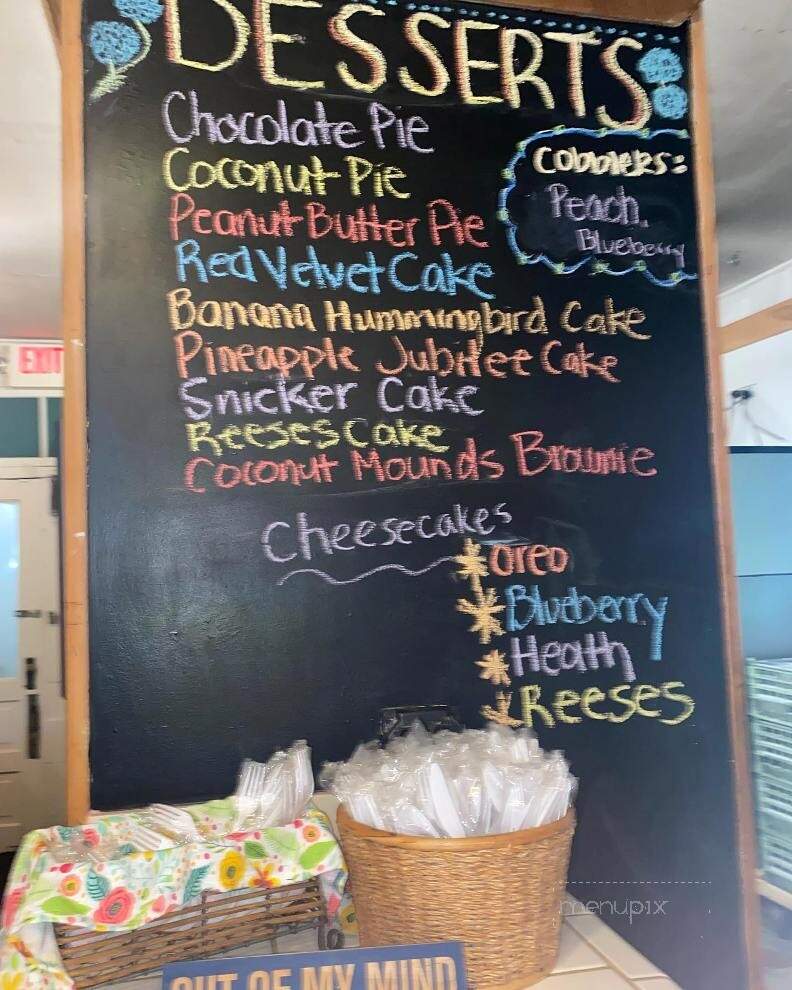 DESSERTS
Chocolate Pie
Coconut Pie
Peanut Butter Pie
Red Velvet Cake
Banana Hummingbird Cake
Pineapple Jubilee Cake
Snicker Cake
Reeses Cake
Coconut Mounds Brownie
Cobblers:
Peach,
Blueberry
Cheesecakes
Oreo
Blueberry
Heath
Reeses
EXIT
OUT OF MY MIND
menupix